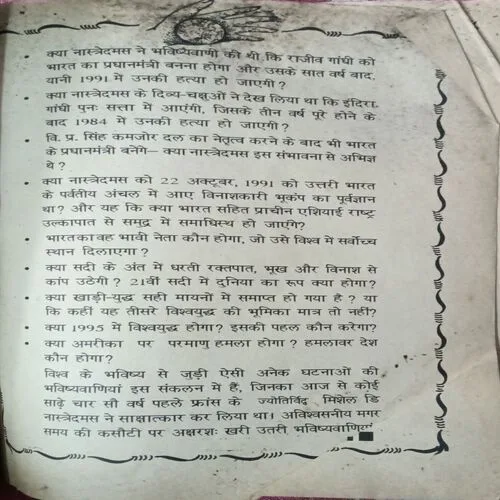 • क्या नास्त्रेदमस ने भविष्यवाणी की थी कि राजीव गांधी को
भारत का प्रधानमंत्री बनना होगा और उसके सात वर्ष बाद,
यानी 1991 में उनकी हत्या हो जाएगी ?
• क्या नास्त्रेदमस के दिव्य-चक्षुओं ने देख लिया था कि इंदिरा
गांधी पुनः सत्ता में आएंगी, जिसके तीन वर्ष पूरे होने के
बाद 1984 में उनकी हत्या हो जाएगी ?
• वि. प्र. सिंह कमजोर दल का नेतृत्व करने के बाद भी भारत
के प्रधानमंत्री बनेंगे– क्या नास्त्रेदमस इस संभावना से अभिज्ञ
थे ?
• क्या नास्त्रेदमस को 22 अक्टूबर, 1991 को उत्तरी भारत
के पर्वतीय अंचल में आए विनाशकारी भूकंप का पूर्वज्ञान
था? और यह कि क्या भारत सहित प्राचीन एशियाई राष्ट्र
उल्कापात से समुद्र में समाधिस्थ हो जाएंगे?
• भारत का वह भावी नेता कौन होगा, जो उसे विश्व में सर्वोच्च
स्थान दिलाएगा ?
• क्या सदी के अंत में धरती रक्तपात, भूख और विनाश से
कांप उठेगी ? 21वीं सदी में दुनिया का रूप क्या होगा?
• क्या खाड़ी-युद्ध सही मायनों में समाप्त हो गया है ? या
कि कहीं यह तीसरे विश्वयुद्ध की भूमिका मात्र तो नहीं?
• क्या 1995 में विश्वयुद्ध होगा? इसकी पहल कौन करेगा?
• क्या अमरीका पर परमाणु हमला होगा ? हमलावर देश
कौन होगा ?
विश्व के भविष्य से जुड़ी ऐसी अनेक घटनाओं की
भविष्यवाणियां इस संकलन में हैं, जिनका आज से कोई
साढ़े चार सौ वर्ष पहले फ्रांस के ज्योतिर्विद मिशेल डि
नास्त्रेदमस ने साक्षात्कार कर लिया था। अविश्वसनीय मगर
समय की कसौटी पर अक्षरशः खरी उतरी भविष्यवाणियां